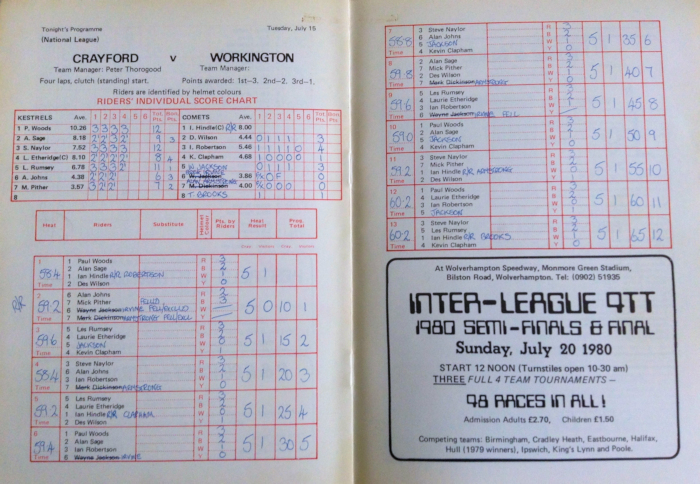 Tonight's Programme
Tuesday, July 15
(National League)
CRAYFORD v WORKINGTON
Team Manager: Peter Thorogood Team Manager:
Four laps, clutch (standing) start. Points awarded: 1st—3. 2nd—2. 3rd—1.
Riders are identified by helmet colours
RIDERS' INDIVIDUAL SCORE CHART
KESTRELS Ave. 1 2 3 4 5 6 COMETS Ave. 1 2 3 4 5 6
1 P. Woods 10.26 3 3 3 3 12 1 I. Hindle(C) R/R 8.00
2 A. Sage 8.18 9 3 2 D. Wilson 4.44 3
3 S. Naylor 7.52 3 3 3 3 12 3 I. Robertson 5.46 4
4 L. Etheridge(C) 8.10 8 4 4 K. Clapham 4.68 1
5 L. Rumsey 6.78 11 1 5 W. JACKSON 3
6 A. Johns 4.38 6 3 6 W. Jackson 3.66
7 M. Pither 3.57 9 2 7 M. Dickinson 4.00
8 8 T. BROOKS
Heat Riders Substitute Helmet Colour Pts. by Riders Heat Result Prog. Total
1 1 Paul Woods R 3
2 Alan Sage B 2
58.4 1 Ian Hindle R/R ROBERTSON W 1 5 1
Time 2 Des Wilson Y 0
2 6 Alan Johns R
R/R 59.2 7 Mick Pither B 3
6 Wayne Jackson W 5 0 10 1
Time 7 Mark Dickinson Y
3 5 Les Rumsey R 3
59.6 4 Laurie Etheridge B 2
5 JACKSON W 1 5 1 15 2
Time 4 Kevin Clapham Y 0
4 3 Steve Naylor R 3
58.4 6 Alan Johns B 2
3 Ian Robertson W 1 5 1 20 3
Time 7 Mark Dickinson ARMSTRONG Y 0
5 5 Les Rumsey R 3
59.2 4 Laurie Etheridge B 2
1 Ian Hindle R/R CLAPHAM W 5 1 25 4
Time 2 Des Wilson Y
6 1 Paul Woods R 3
59.4 2 Alan Sage B 2
3 Ian Robertson W 1 5 1 30 5
Time 6 Wayne Jackson Y 0
7 3 Steve Naylor R 3
58.8 6 Alan Johns B 2
5 JACKSON W 1 5 1 35 6
Time 4 Kevin Clapham Y 0
8 2 Alan Sage R
59.8 7 Mick Pither B
2 Des Wilson W 1 5 1 40 7
Time 7 Mark Dickinson ARMSTRONG Y 0
9 5 Les Rumsey R
59.6 4 Laurie Etheridge B
3 Ian Robertson W 1 5 1 45 8
Time 6 Wayne Jackson FELL Y
10 1 Paul Woods R 3
59.0 2 Alan Sage B 2
5 JACKSON W 1 5 1 50 9
Time 4 Kevin Clapham Y 0
11 3 Steve Naylor R
59.2 7 Mick Pither B
1 Ian Hindle R/R ARMSTRONG W 5 1 55 10
Time 2 Des Wilson Y
12 1 Paul Woods R 3
60.2 4 Laurie Etheridge B 2
3 Ian Robertson W 1 5 1 60 11
Time 5 JACKSON Y 0
13 3 Steve Naylor R 3
60.2 5 Les Rumsey B 2
1 Ian Hindle R/R BROOKS W 5 1 65 12
Time 4 Kevin Clapham Y
At Wolverhampton Speedway, Monmore Green Stadium,
Bilston Road, Wolverhampton. Tel: (0902) 51935
INTER-LEAGUE 4TT
1980 SEMI-FINALS & FINAL
Sunday, July 20 1980
START 12 NOON (Turnstiles open 10-30 am)
THREE FULL 4 TEAM TOURNAMENTS —
48 RACES IN ALL!
Admission Adults £2.70, Children £1.50
Competing teams: Birmingham, Cradley Heath, Eastbourne, Halifax,
Hull (1979 winners), Ipswich, King's Lynn and Poole.